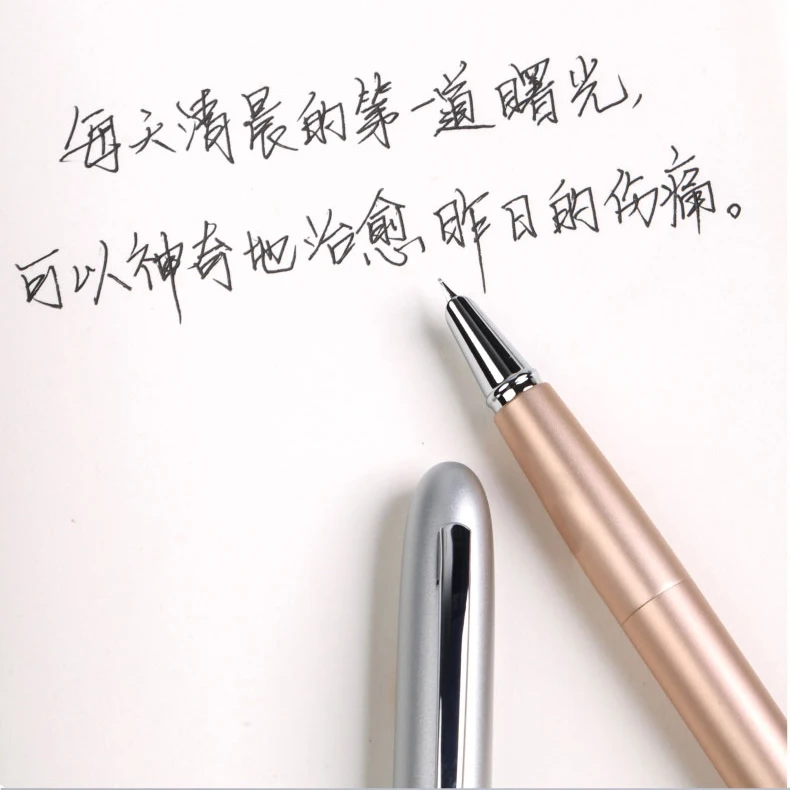 每天清晨的第一道曙光,
可以神奇地治愈昨日的伤痛。